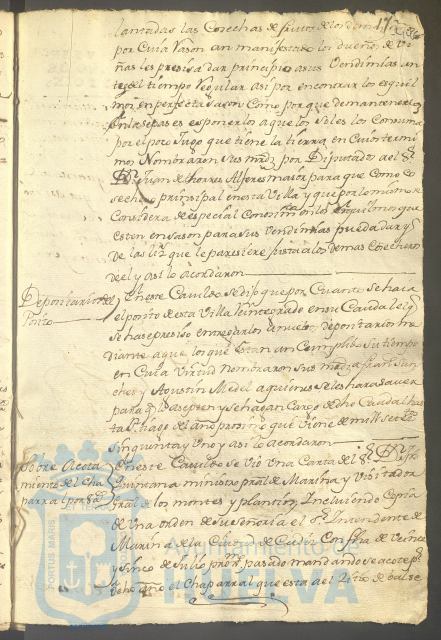 lantadas las Cosechas de frutos de lo demas 17
por Cuia rason an manifestado los dueños de Vi
ñas les presisa dar principio a sus Vendimias an
tes del tiempo Regular asi por encontrar los esquil
mos en perfecta sason Como por que demantenerlos
en las sepas es esponerlos a que los soles los Consuma
por el poco Jugo que tiene la tierra en Cuios termi
nos Nombraron sus mrds por Diputado a el Sr
Dn Juan de horres Alferes maior para que Como Co
sechero principal en esta Villa y que por lo mismo se
Considera de especial Conosimto en los esquilmos que
esten en sason para sus Vendimias pueda dar
de las lizs que le paresiere justa a los demas Cosecheros
de el y asi lo acordaron
Depositarios del
Posito
En este Cavildo se dijo que por Cuanto se halla
el posito de esta Villa reintegrado en su Caudal y
se hase presiso entregarlos de nuebo depositario me
diante a que los que estan an Cumplido su tiempo
en Cuia Virtud Nombraron sus mrds a fran San
ches y Agustin Medel a quienes se les hara saver
para que lo asepten y se hagan Cargo de dho Caudal has
ta Stiago del año prosimo que viene de mill setts
sinquenta y uno y asi lo acordaron
Sobre Acota
miento del Cha
parral
En este Cavildo se vio Una Carta del Sr Dn
Quintana ministro pral de Marina y Visitador
gral de los montes y plantios Incluiendo Copia
de Una orden de su señoria el Sr Intendente de
Marina de la Ciudad de Cadis Con fha de Veinte
y sinco de Julio prosmo pasado mandando se acote pr
dcho año el Chaparral que esta al sitio de
PORTUS MARIS
Ayuntamiento de
HUELVA